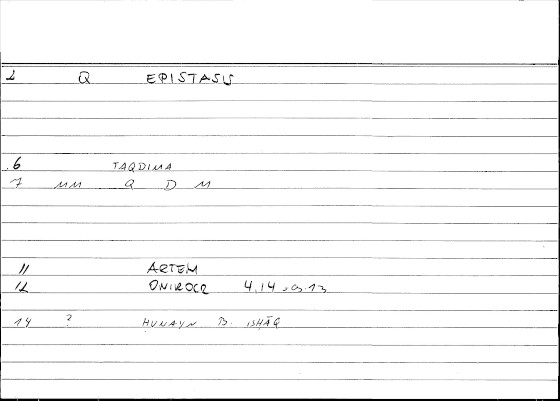 2 Q EPISTASIS
6 TAQDIMA
7 MM Q D M
11 ARTEM
12 ONIROCR 4,14
14 ? HUNAYN B. ISHĀQ